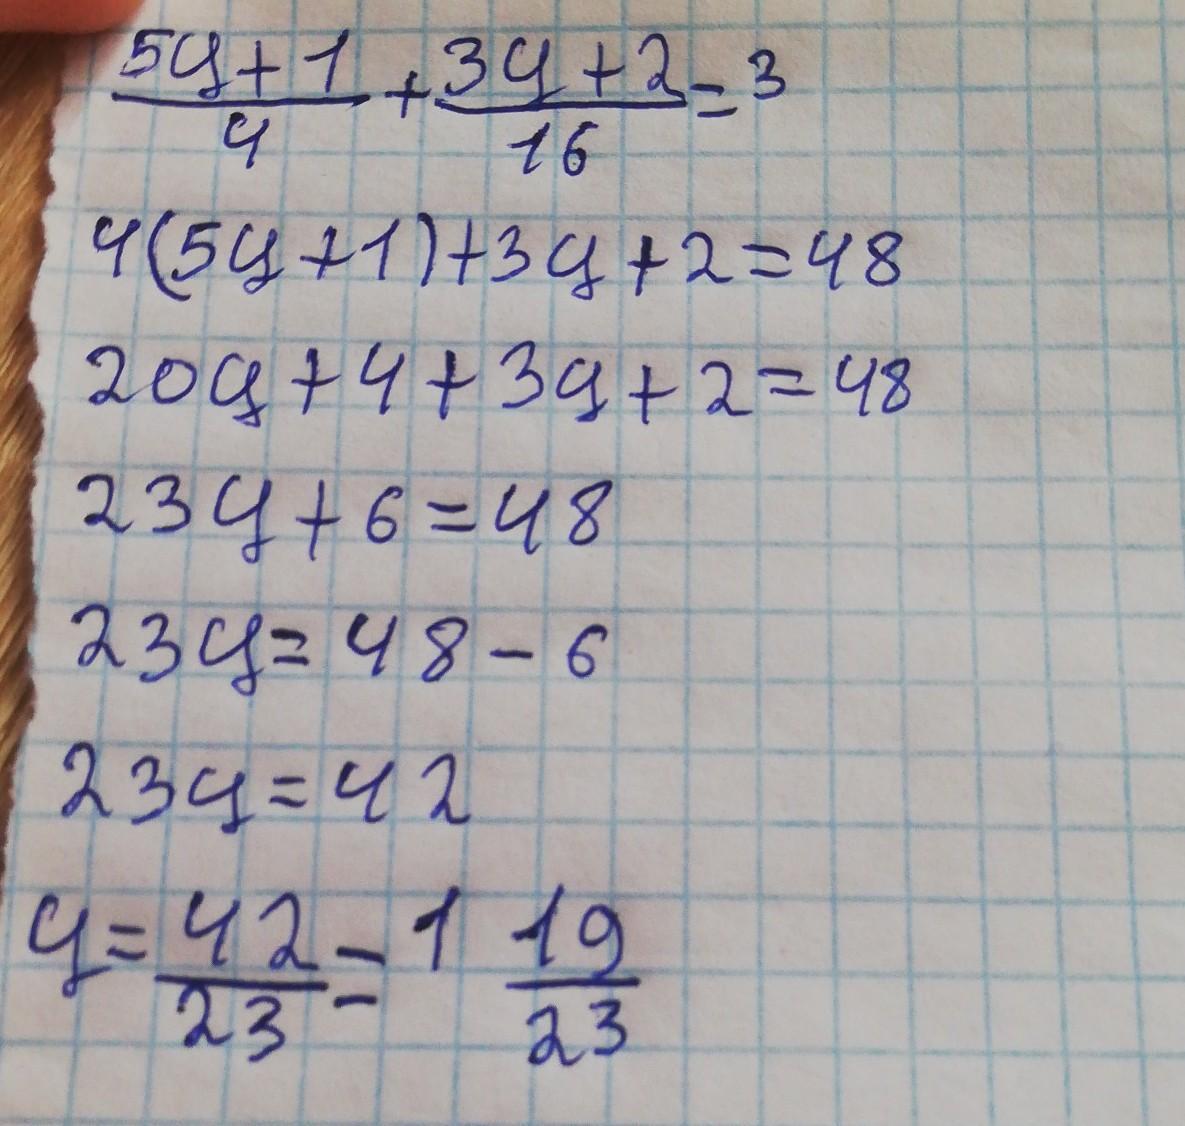 5y+1/4 + 3y+2/16 = 3
4(5y+1)+3y+2=48
20y+4+3y+2=48
23y+6=48
23y=48-6
23y=42
y=42/23=1 19/23